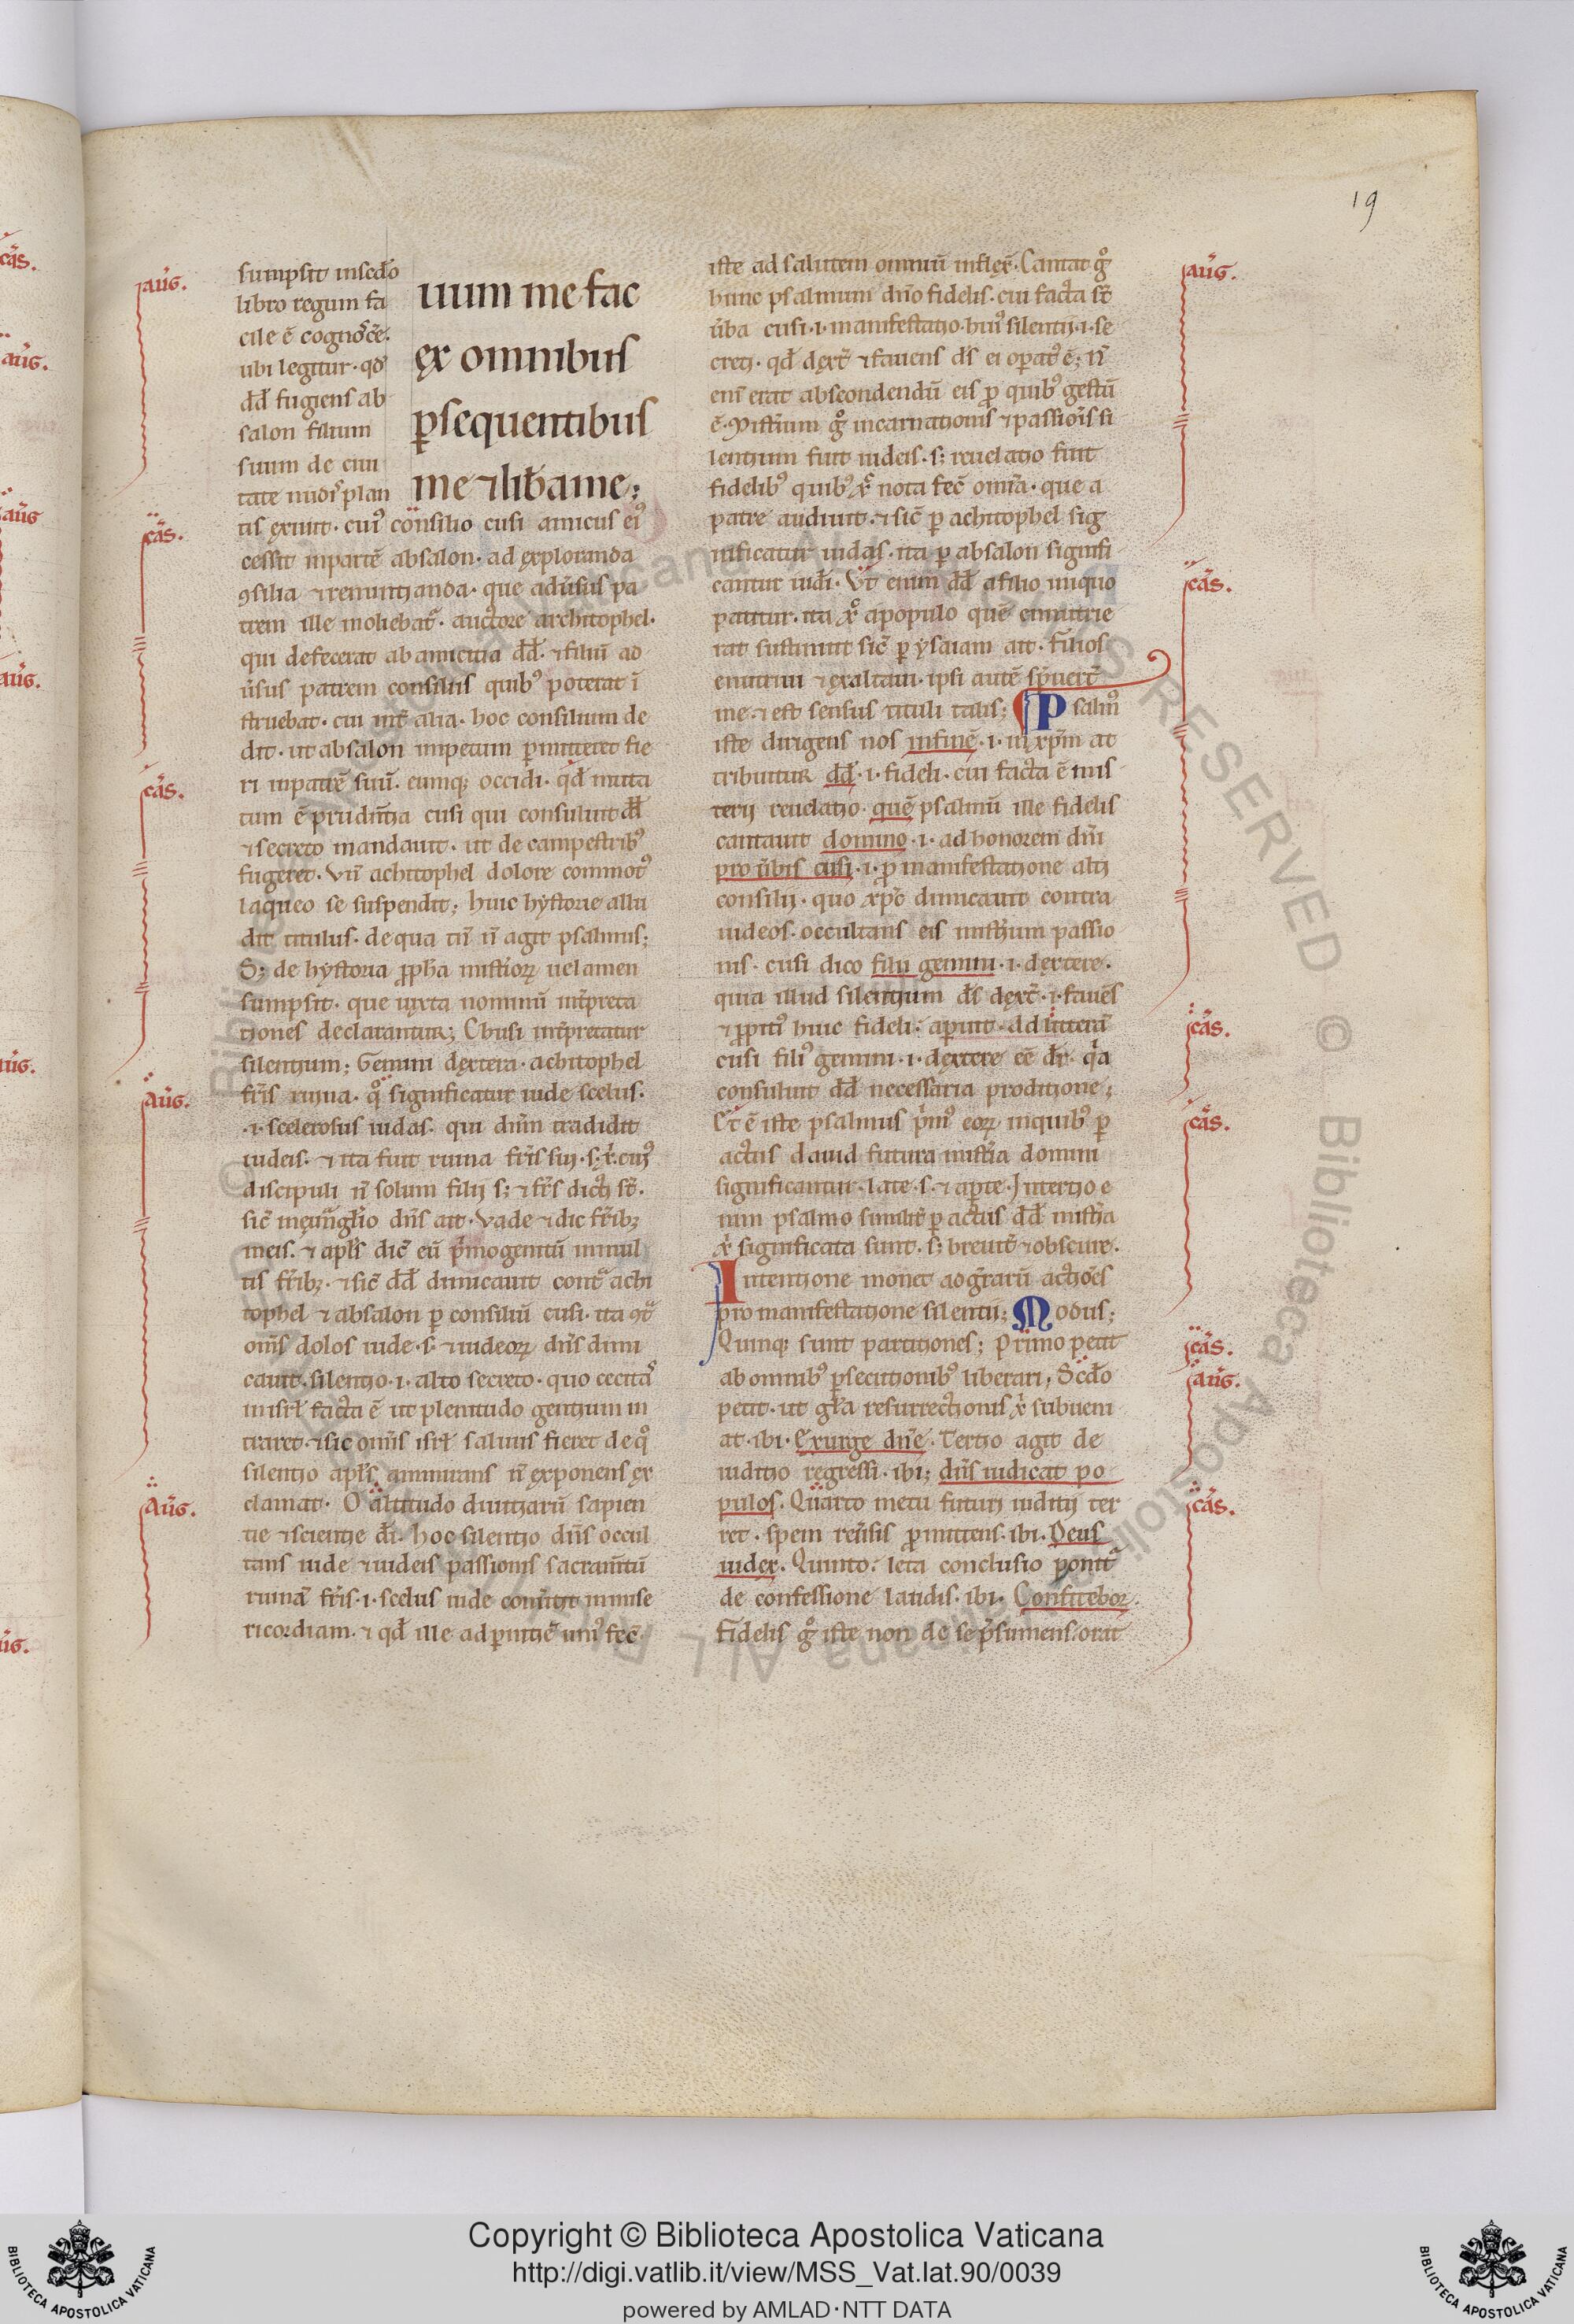 19
sumpsit in scdo
libro regum fa
cile ē cognosc̄e.
ubi legitur. qd
dd̄ fugiens ab
salon filium
suum de ciui
tate nudis plan
uum me fac
ex omnibus
ꝑsequentibus
me ⁊ lib̄a me;
tis exiuit. cui' consilio cusi amicus ei'
cessit in partē absalon. ad exploranda
ꝯsilia ⁊ renuntianda. que adūsus pa
trem ille moliebat̄. auctore architophel.
qui defecerat ab amicitia dd̄. ⁊ filiū ad
ūsus patrem consiliis quib' poterat ī
struebat. cui int̄ alia. hoc consilium de
dit. ut absalon impetum ꝑmitteret fie
ri in patrē suū. eumq; occidi. qd̄ muta
tum ē prudn̄tia cusi qui consuluit dd̄
⁊ secreto mandauit. ut de campestrib'
fugeret. Vn̄ achitophel dolore commot'
laqueo se suspendit; huic hystorie allu
dit titulus. de qua tn̄ n̄ agit psalmus;
S; de hystoria ꝓph̄a mistioꝝ uelamen
sumpsit. que iuxta nominū int̄preta
tiones declarantur; Chusi int̄pretatur
silentium; Gemini dextera. achitophel
fr̄is ruina. qͦ significatur iude scelus.
.i. scelerosus iudas. qui dn̄m tradidit
iudeis. ⁊ ita fuit ruina fr̄is sui. s. x̄. cui'
discipuli n̄ solum filii s; ⁊ fr̄s dicti st̄.
sic̄ in euangl̄io dn̄s ait. Vade ⁊ dic fr̄ib;
meis. ⁊ apl̄s dic̄ eū p̄mogenitū in mul
tis fr̄ib;. ⁊ sic̄ dd̄ dimicauit cont̄ achi
tophel ⁊ absalon ꝑ consiliū cusi. ita ꝯt̄
om̄s dolos iude. s. ⁊ iudeoꝝ dn̄s dimi
cauit. silentio. i. alto secreto. quo cecitas
in isrl̄ facta ē ut plenitudo gentium in
traret. ⁊ sic om̄is isrl̄ saluus fieret de qͦ
silentio apl̄s ammirans n̄ exponens ex
clamat. O altitudo diuitiarū sapien
tie ⁊ scientie dī. hoc silentio dn̄s occul
tans iude ⁊ iudeis passionis sacram̄tū
ruinā fr̄is. i. scelus iude conūtit in mise
ricordiam. ⁊ qd̄ ille ad ꝑnitiē uni' fec̄.
iste ad salutem omniū inflex̄. Cantat g̊
hunc psalmum dn̄o fidelis. cui facta st̄
ūba cusi. i. manifestatio. hui' silentii. i. se
creti. qd̄ dext̄ ⁊ fauens ds̄ ei operat' ē; n̄
eni erat abscondendū eis ꝓ quib' gestū
ē. Mist̄ium g̊ incarnationis ⁊ passiōis si
lentium fuit iudeis. s; reuelatio fuit
fidelib' quib' x̄ nota fec̄ omīa. que a
patre audiuit. ⁊ sic̄ ꝑ achitophel sig
nificatur iudas. ita ꝑ absalon signifi
cantur iudī. Vt enim dd̄ a filio iniquo
patitur. ita x̄ a populo quē enutrie
rat sustinuit sic̄ ꝑ ysaiam ait. Filios
enutriui ⁊ exaltaui. ipsi autē sp̄uer̄t
me. ⁊ est sensus tituli talis; Psalm'
iste dirigens nos in finē. i. in xp̄m at
tribuitur dd̄. i. fideli. cui facta ē mis
terii reuelatio. quē psalmū ille fidelis
cantauit domino. i. ad honorem dn̄i
pro ūbis cusi. i. ꝓ manifestatione alti
consilii. quo xp̄c dimicauit contra
iudeos. occultans eis mist̄ium passio
nis. cusi dico filii gemini. i. dextere.
quia illud silentium ds̄ dext̄. i. fauēs
⁊ ꝓpiti' huic fideli. aperuit. ad litterā
cusi fili' gemini. i. dextere eē dr̄. qa
consuluit dd̄ necessaria proditione;
Et ē iste psalmus p̄m' eoꝝ in quib' ꝑ
actus dauid futura mist̄ia domini
significantur. late. s. ⁊ aperte. In tertio e
nim psalmo similit̄ ꝑ actus dd̄ mist̄ia
x̄ significata sunt. s; breuit̄ ⁊ obscure.
Intentione monet ad gr̄arū actiōes
pro manifestatione silentii; Modus;
Quinq; sunt partitiones; Primo petit
ab omnib' ꝑsecutionib' liberari; Scdo
petit. ut gl̄a resurrectionis x̄ subueni
at. ibi. Exurge dn̄e. Tertio agit de
iuditio regressi. ibi; dn̄s iudicat po
pulos. Quarto metu futuri iuditii ter
ret. spem reūsis ꝓmittens. ibi. Deus
iudex. Quinto. leta conclusio ponit̄
de confessione laudis. ibi. Confitebor.
Fidelis g̊ iste non de se p̄sumens. orat
aūg.
cās.
cās.
aūg.
Aūg.
aūg.
cās.
cās.
cās.
cās.
aūg.
cās.
Copyright © Biblioteca Apostolica Vaticana
http://digi.vatlib.it/view/MSS_Vat.lat.90/0039
powered by AMLAD·NTT DATA
BIBLIOTECA APOSTOLICA VATICANA
BIBLIOTECA APOSTOLICA VATICANA